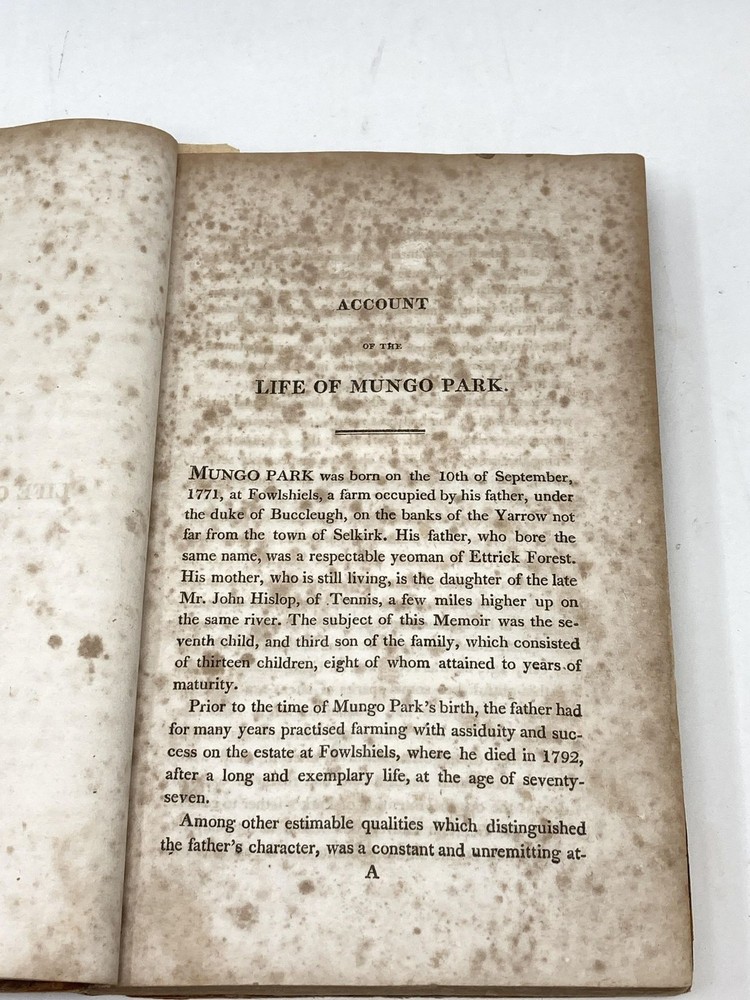 ACCOUNT
OF THE
LIFE OF MUNGO PARK.
MUNGO PARK was born on the 10th of September,
1771, at Fowlshiels, a farm occupied by his father, under
the duke of Buccleugh, on the banks of the Yarrow not
far from the town of Selkirk. His father, who bore the
same name, was a respectable yeoman of Ettrick Forest.
His mother, who is still living, is the daughter of the late
Mr. John Hislop, of Tennis, a few miles higher up on
the same river. The subject of this Memoir was the se-
venth child, and third son of the family, which consisted
of thirteen children, eight of whom attained to years of
maturity.
Prior to the time of Mungo Park's birth, the father had
for many years practised farming with assiduity and suc-
cess on the estate at Fowlshiels, where he died in 1792,
after a long and exemplary life, at the age of seventy-
seven.
Among other estimable qualities which distinguished
the father's character, was a constant and unremitting at-
A